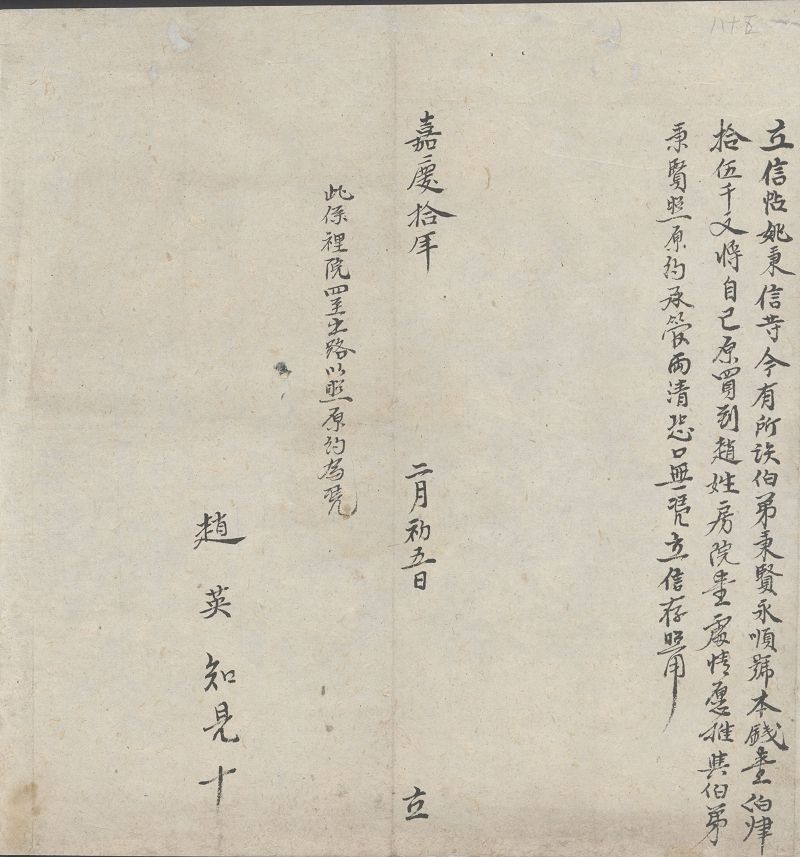 八十五
立信帖姚秉信等今有所該伯弟秉賢永順號本錢壹伯肆
拾伍千文將自己原買到趙姓房院壹處情愿推與伯弟
秉賢照原約承管兩清恐口無凭立信存照用
嘉慶拾年 二月初五日 立
此係裡院四至出路以照原約為凭
趙英知見十